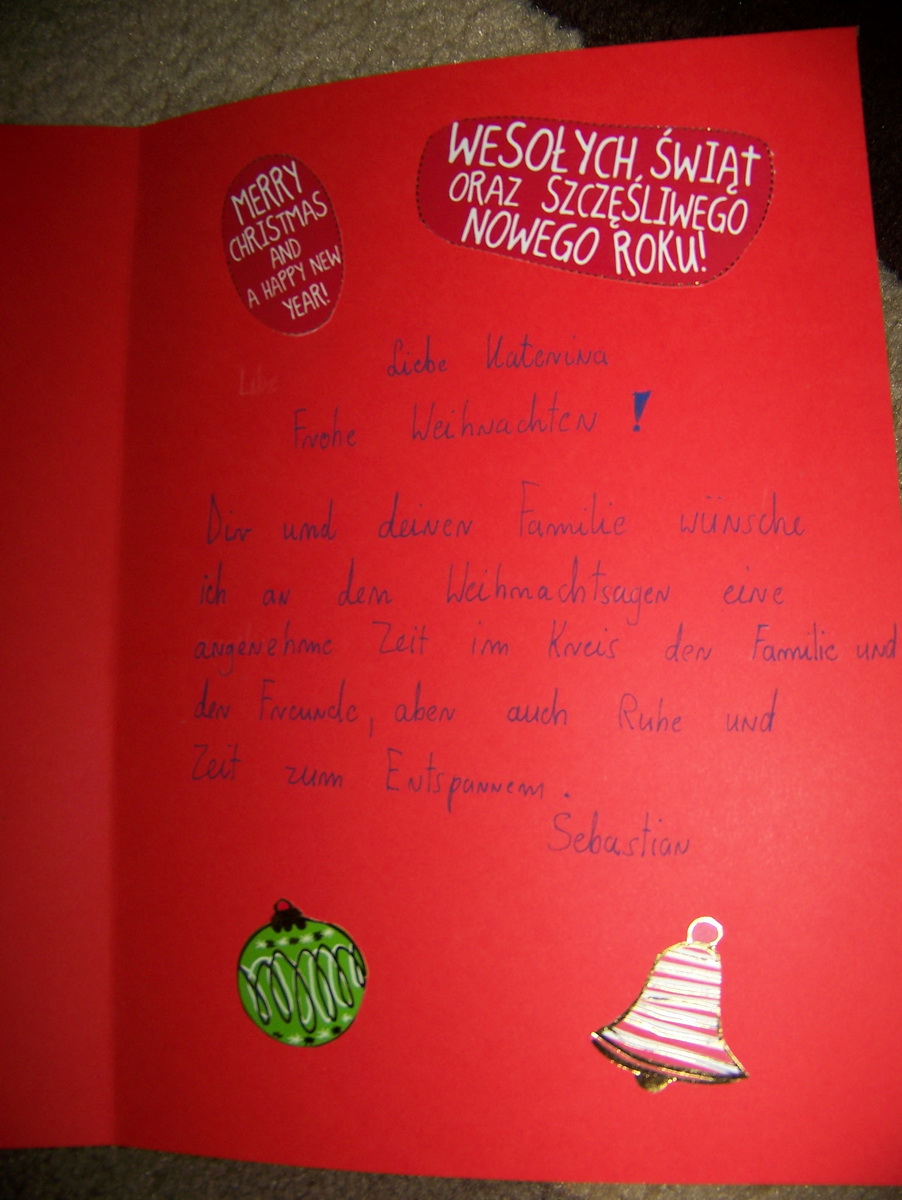 MERRY
CHRISTMAS
AND
A HAPPY NEW
YEAR!
WESOŁYCH ŚWIĄT
ORAZ SZCZĘŚLIWEGO
NOWEGO ROKU!
Liebe Katerina
Frohe Weihnachten!
Dir und deiner Familie wünsche
ich an den Weihnachtsagen eine
angenehme Zeit im Kreis der Familie und
der Freunde, aber auch Ruhe und
Zeit zum Entspannem.
Sebastian